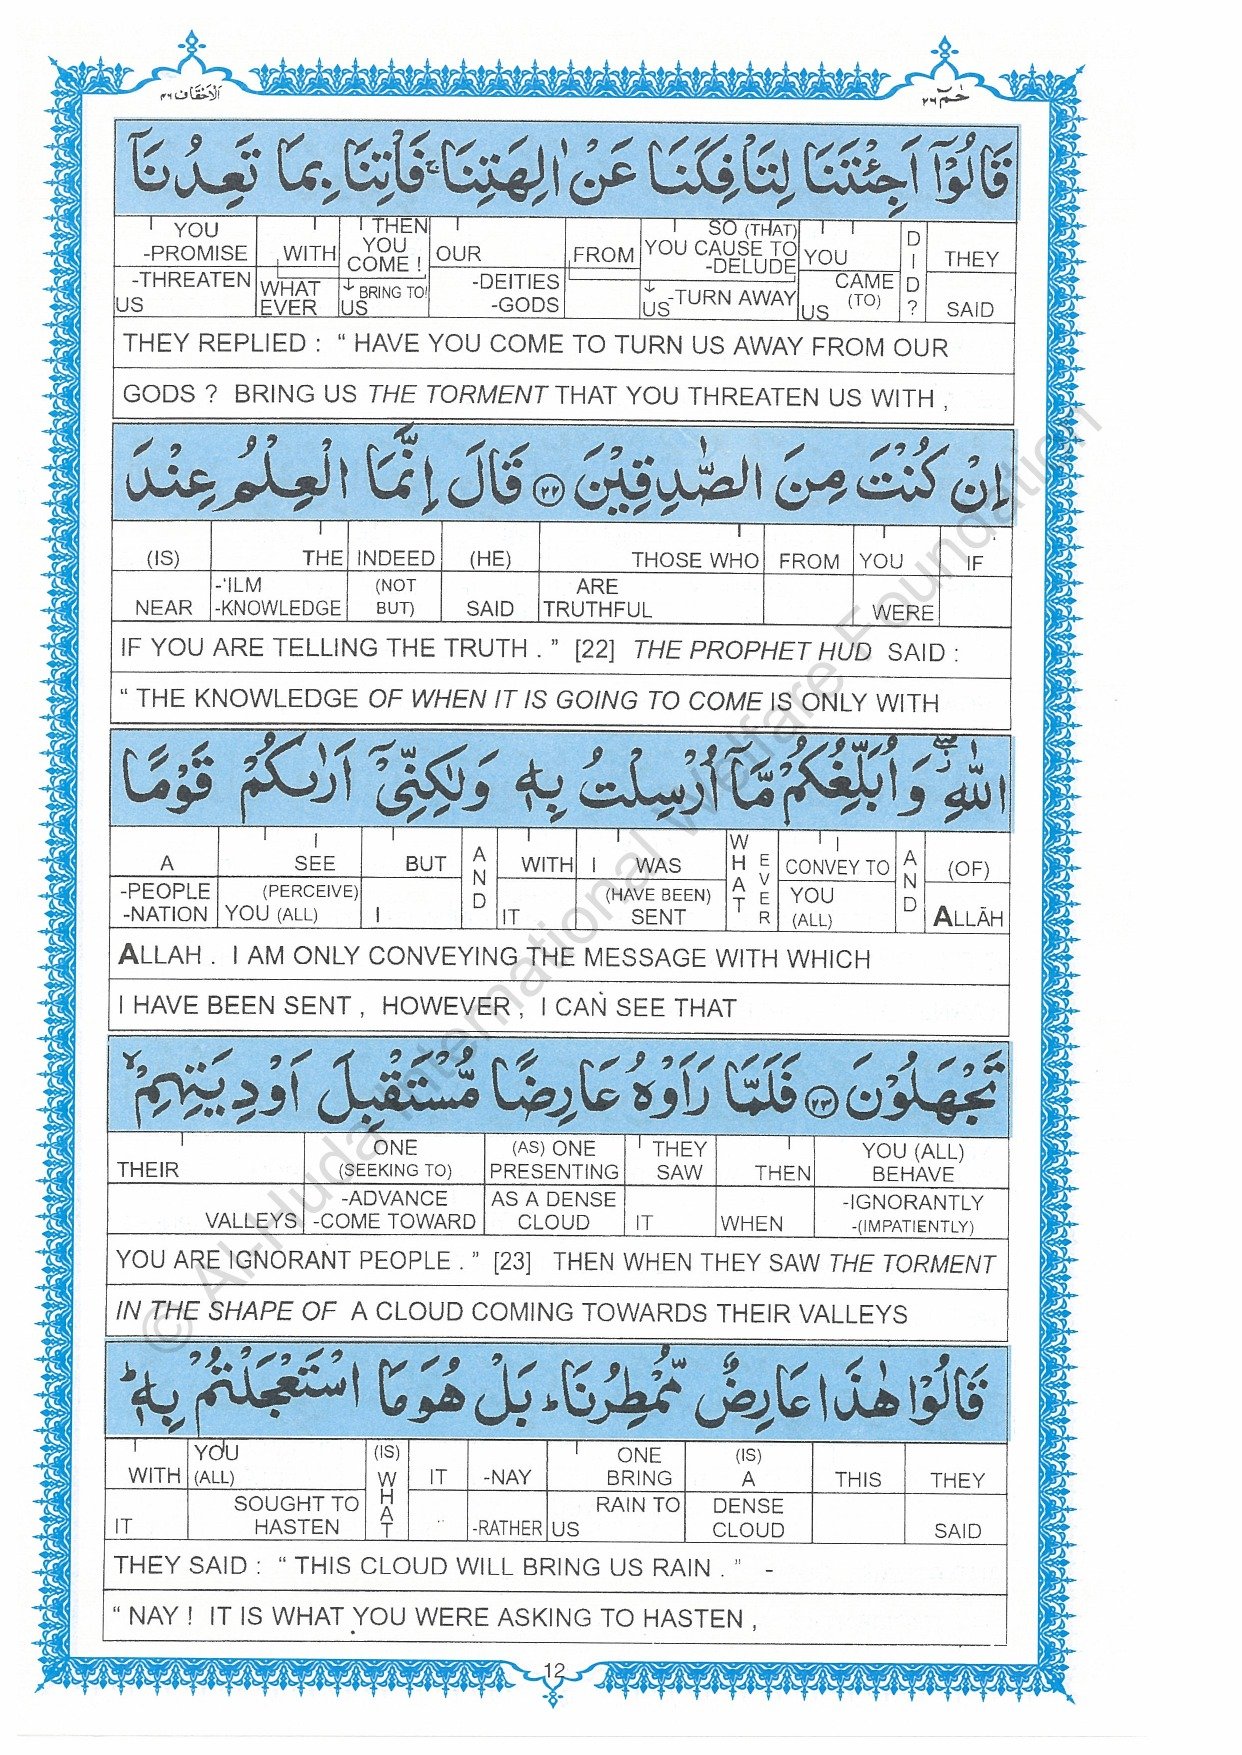 الاحقاف ٤٦
حٰمٓ ٢٦
قَالُوْۤا اَجِئْتَنَا لِتَاْفِكَنَا عَنْ اٰلِهَتِنَا ۚ فَاْتِنَا بِمَا تَعِدُنَاۤ
YOU -PROMISE -THREATEN US | WITH WHAT EVER | THEN YOU COME ! ↓ BRING TO! US | OUR -DEITIES -GODS | FROM | SO (THAT) YOU CAUSE TO -DELUDE ↓ -TURN AWAY US | YOU CAME (TO) US | DID? | THEY SAID
THEY REPLIED : “ HAVE YOU COME TO TURN US AWAY FROM OUR
GODS ? BRING US THE TORMENT THAT YOU THREATEN US WITH ,
اِنْ كُنْتَ مِنَ الصّٰدِقِيْنَ ﴿٢٢﴾ قَالَ اِنَّمَا الْعِلْمُ عِنْدَ
(IS) NEAR | THE -'ILM -KNOWLEDGE | INDEED (NOT BUT) | (HE) SAID | THOSE WHO ARE TRUTHFUL | FROM | YOU WERE | IF
IF YOU ARE TELLING THE TRUTH . ” [22] THE PROPHET HUD SAID :
“ THE KNOWLEDGE OF WHEN IT IS GOING TO COME IS ONLY WITH
اللّٰهِ ۖ وَ اُبَلِّغُكُمْ مَّاۤ اُرْسِلْتُ بِهٖ وَلٰكِنِّيْۤ اَرٰىكُمْ قَوْمًا
A -PEOPLE -NATION | I SEE (PERCEIVE) YOU (ALL) | BUT I | AND | WITH IT | I WAS (HAVE BEEN) SENT | WHAT EVER | I CONVEY TO YOU (ALL) | AND | (OF) ALLĀH
ALLAH . I AM ONLY CONVEYING THE MESSAGE WITH WHICH
I HAVE BEEN SENT , HOWEVER , I CAN SEE THAT
تَجْهَلُوْنَ ﴿٢٣﴾ فَلَمَّا رَاَوْهُ عَارِضًا مُّسْتَقْبِلَ اَوْدِيَتِهِمْ ۙ
THEIR VALLEYS | ONE (SEEKING TO) -ADVANCE -COME TOWARD | (AS) ONE PRESENTING AS A DENSE CLOUD | THEY SAW IT | THEN WHEN | YOU (ALL) BEHAVE -IGNORANTLY -(IMPATIENTLY)
YOU ARE IGNORANT PEOPLE . ” [23] THEN WHEN THEY SAW THE TORMENT
IN THE SHAPE OF A CLOUD COMING TOWARDS THEIR VALLEYS
قَالُوْا هٰذَا عَارِضٌ مُّمْطِرُنَا ؕ بَلْ هُوَ مَا اسْتَعْجَلْتُمْ بِهٖ ؕ
WITH IT | YOU (ALL) SOUGHT TO HASTEN | (IS) WHAT | IT | -NAY -RATHER | ONE BRING RAIN TO US | (IS) A DENSE CLOUD | THIS | THEY SAID
THEY SAID : “ THIS CLOUD WILL BRING US RAIN . ” -
“ NAY ! IT IS WHAT YOU WERE ASKING TO HASTEN ,
12
© Al-Huda International Welfare Foundation